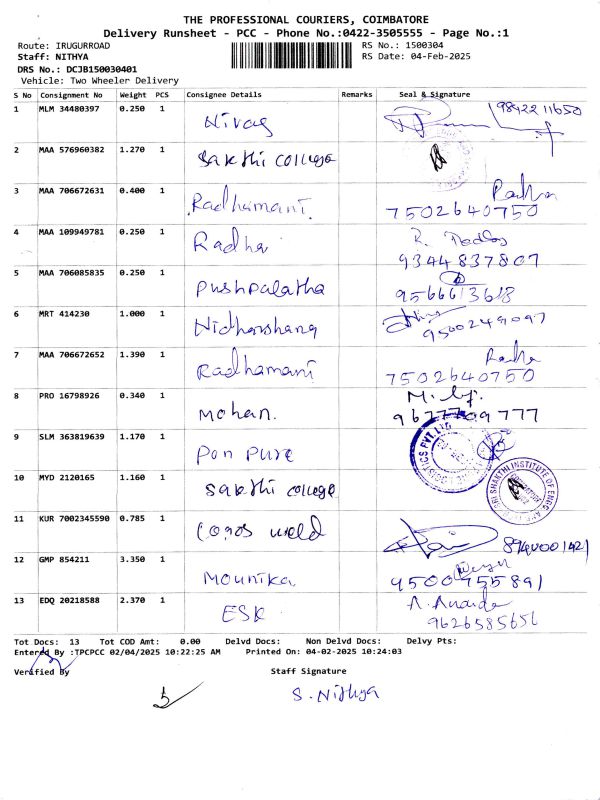 THE PROFESSIONAL COURIERS, COIMBATORE
Delivery Runsheet - PCC - Phone No.:0422-3505555 - Page No.:1
Route: IRUGURROAD RS No.: 1500304
Staff: NITHYA RS Date: 04-Feb-2025
DRS No.: DCJB150030401
Vehicle: Two Wheeler Delivery
S No Consignment No Weight PCS Consignee Details Remarks Seal & Signature
1 MLM 34480397 0.250 1 Nivas 9842211650
2 MAA 576960382 1.270 1 Sakthi college
3 MAA 706672631 0.400 1 Radhamani Radha
7502640750
4 MAA 109949781 0.250 1 Radha R.
9344837807
5 MAA 706085835 0.250 1 Pushpalatha
9566613618
6 MRT 414230 1.000 1 Nidharshana
9500249097
7 MAA 706672652 1.390 1 Radhamani Radha
7502640750
8 PRO 16798926 0.340 1 Mohan.
9677709777
9 SLM 363819639 1.170 1 Pon pure
10 MYD 2120165 1.160 1 Sakthi college
SRI SHAKTHI INSTITUTE OF ENGG
11 KUR 7002345590 0.785 1 Logos weld
12 GMP 854211 3.350 1 Mounika
9500955891
13 EDQ 20218588 2.370 1 ESK
9626585656
Tot Docs: 13 Tot COD Amt: 0.00 Delvd Docs: Non Delvd Docs: Delvy Pts:
Entered By :TPCPCC 02/04/2025 10:22:25 AM Printed On: 04-02-2025 10:24:03
Verified By Staff Signature
S. Nithya